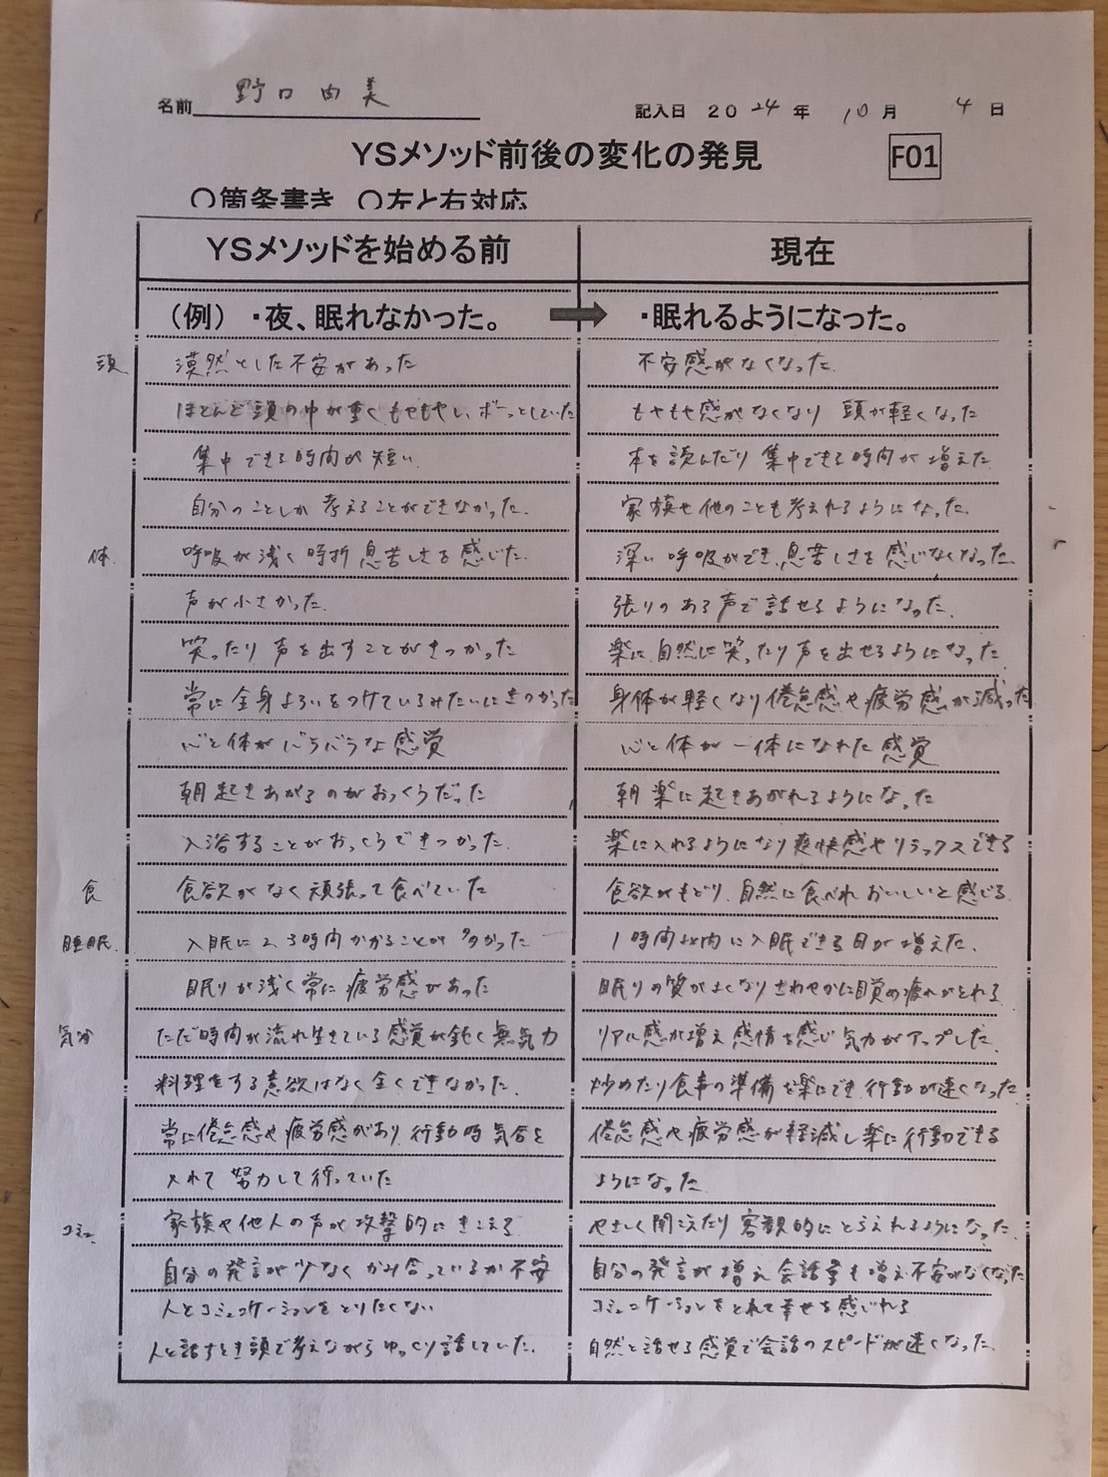 名前 野口由美 記入日 2024年 10月 4日
YSメソッド前後の変化の発見 F01
○箇条書き ○左と右対応
YSメソッドを始める前 現在
(例)・夜、眠れなかった。 ・眠れるようになった。
頭 漠然とした不安があった 不安感がなくなった.
ほとんど頭の中が重くもやもやし、ボーっとしていた もやもや感がなくなり 頭が軽くなった
集中できる時間が短い. 本を読んだり集中できる時間が増えた.
自分のことしか考えることができなかった. 家族や他のことも考えれるようになった.
体. 呼吸が浅く時折息苦しさを感じた. 深い呼吸ができ、息苦しさを感じなくなった.
声が小さかった. 張りのある声で話せるようになった.
笑ったり声を出すことがきつかった 楽に自然に笑ったり声を出せるようになった.
常に全身よろいをつけているみたいにきつかった 身体が軽くなり倦怠感や疲労感が減った
心と体がバラバラな感覚 心と体が一体になれた感覚
朝起きあがるのがおっくうだった 朝楽に起きあがれるようになった
入浴することがおっくうできつかった. 楽に入れるようになり爽快感やリラックスできる
食 食欲がなく頑張って食べていた 食欲がもどり、自然に食べれおいしいと感じる.
睡眠. 入眠に2、3時間かかることが多かった 1時間以内に入眠できる日が増えた.
眠りが浅く常に疲労感があった 眠りの質がよくなりさわやかに目覚め疲れがとれる
気分 ただ時間が流れ生きている感覚が鈍く無気力 リアル感が増え感情を感じ気力がアップした.
料理をする意欲はなく全くできなかった. 炒めたり食事の準備を楽にでき行動が速くなった.
常に倦怠感や疲労感があり行動時気合を 倦怠感や疲労感が軽減し楽に行動できる
入れて努力して行っていた ようになった.
コミュ. 家族や他人の声が攻撃的にきこえる やさしく聞こえたり客観的にとらえれるようになった.
自分の発言が少なくかみ合っているか不安 自分の発言が増え会話量も増え不安がなくなった
人とコミュニケーションをとりたくない コミュニケーションをとれて幸せを感じれる
人と話すとき頭で考えながらゆっくり話していた. 自然と話せる感覚で会話のスピードが速くなった.